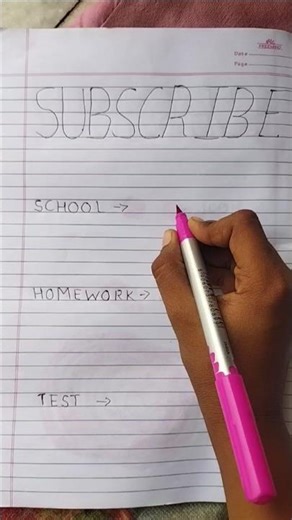 Date
Page
SUBSCRIBE
SCHOOL →
HOMEWORK →
TEST →